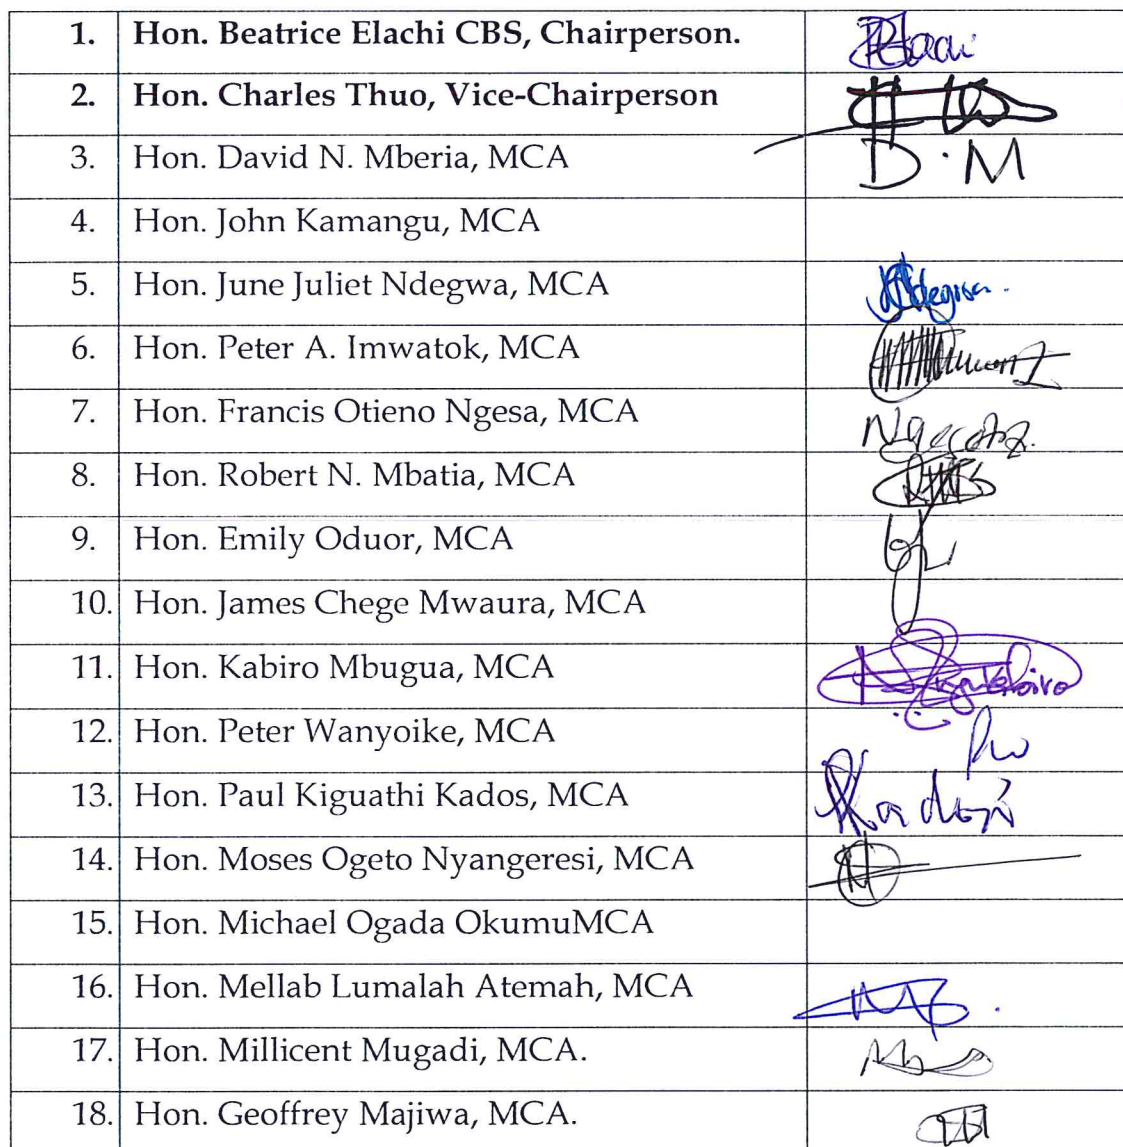 1. Hon. Beatrice Elachi CBS, Chairperson.
2. Hon. Charles Thuo, Vice-Chairperson
3. Hon. David N. Mberia, MCA D.M
4. Hon. John Kamangu, MCA
5. Hon. June Juliet Ndegwa, MCA
6. Hon. Peter A. Imwatok, MCA
7. Hon. Francis Otieno Ngesa, MCA
8. Hon. Robert N. Mbatia, MCA
9. Hon. Emily Oduor, MCA
10. Hon. James Chege Mwaura, MCA
11. Hon. Kabiro Mbugua, MCA
12. Hon. Peter Wanyoike, MCA
13. Hon. Paul Kiguathi Kados, MCA
14. Hon. Moses Ogeto Nyangeresi, MCA
15. Hon. Michael Ogada OkumuMCA
16. Hon. Mellab Lumalah Atemah, MCA
17. Hon. Millicent Mugadi, MCA.
18. Hon. Geoffrey Majiwa, MCA.